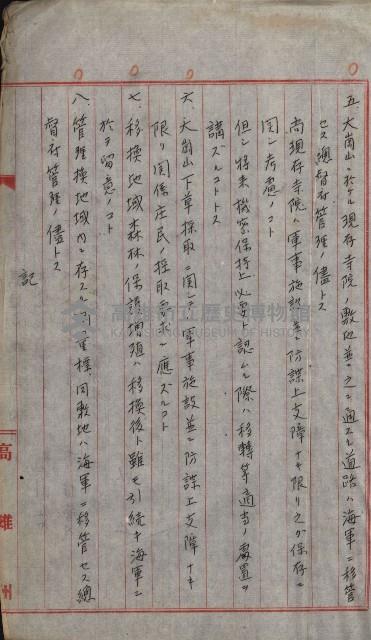 五、大崗山ニ於ケル現存寺院ノ敷地並ニ之ニ通ズル道路ハ海軍ニ移管
セズ總督府管理ノ儘トス
尚現存寺院ハ軍事施設並ニ防諜上支障ナキ限リ之ガ保存ニ
関シ考慮ノコト
但シ将来機密保持上必要ト認ムル際ハ移轉等適當ノ處置ヲ
講ズルコトトス
六、大崗山下草採取ニ関シテハ軍事施設並ニ防諜上支障ナキ
限リ関係庄民ノ採取要求ニ應ズルコト
七、移換地域森林ノ保護増殖ハ移換後ト雖モ引続キ海軍ニ
於テ留意ノコト
八、管理換地域内ニ存スル 標同敷地ハ海軍ニ移管セズ總
督府管理ノ儘トス
記
高雄州
高雄市立歷史博物館
KAOHSIUNG MUSEUM OF HISTORY